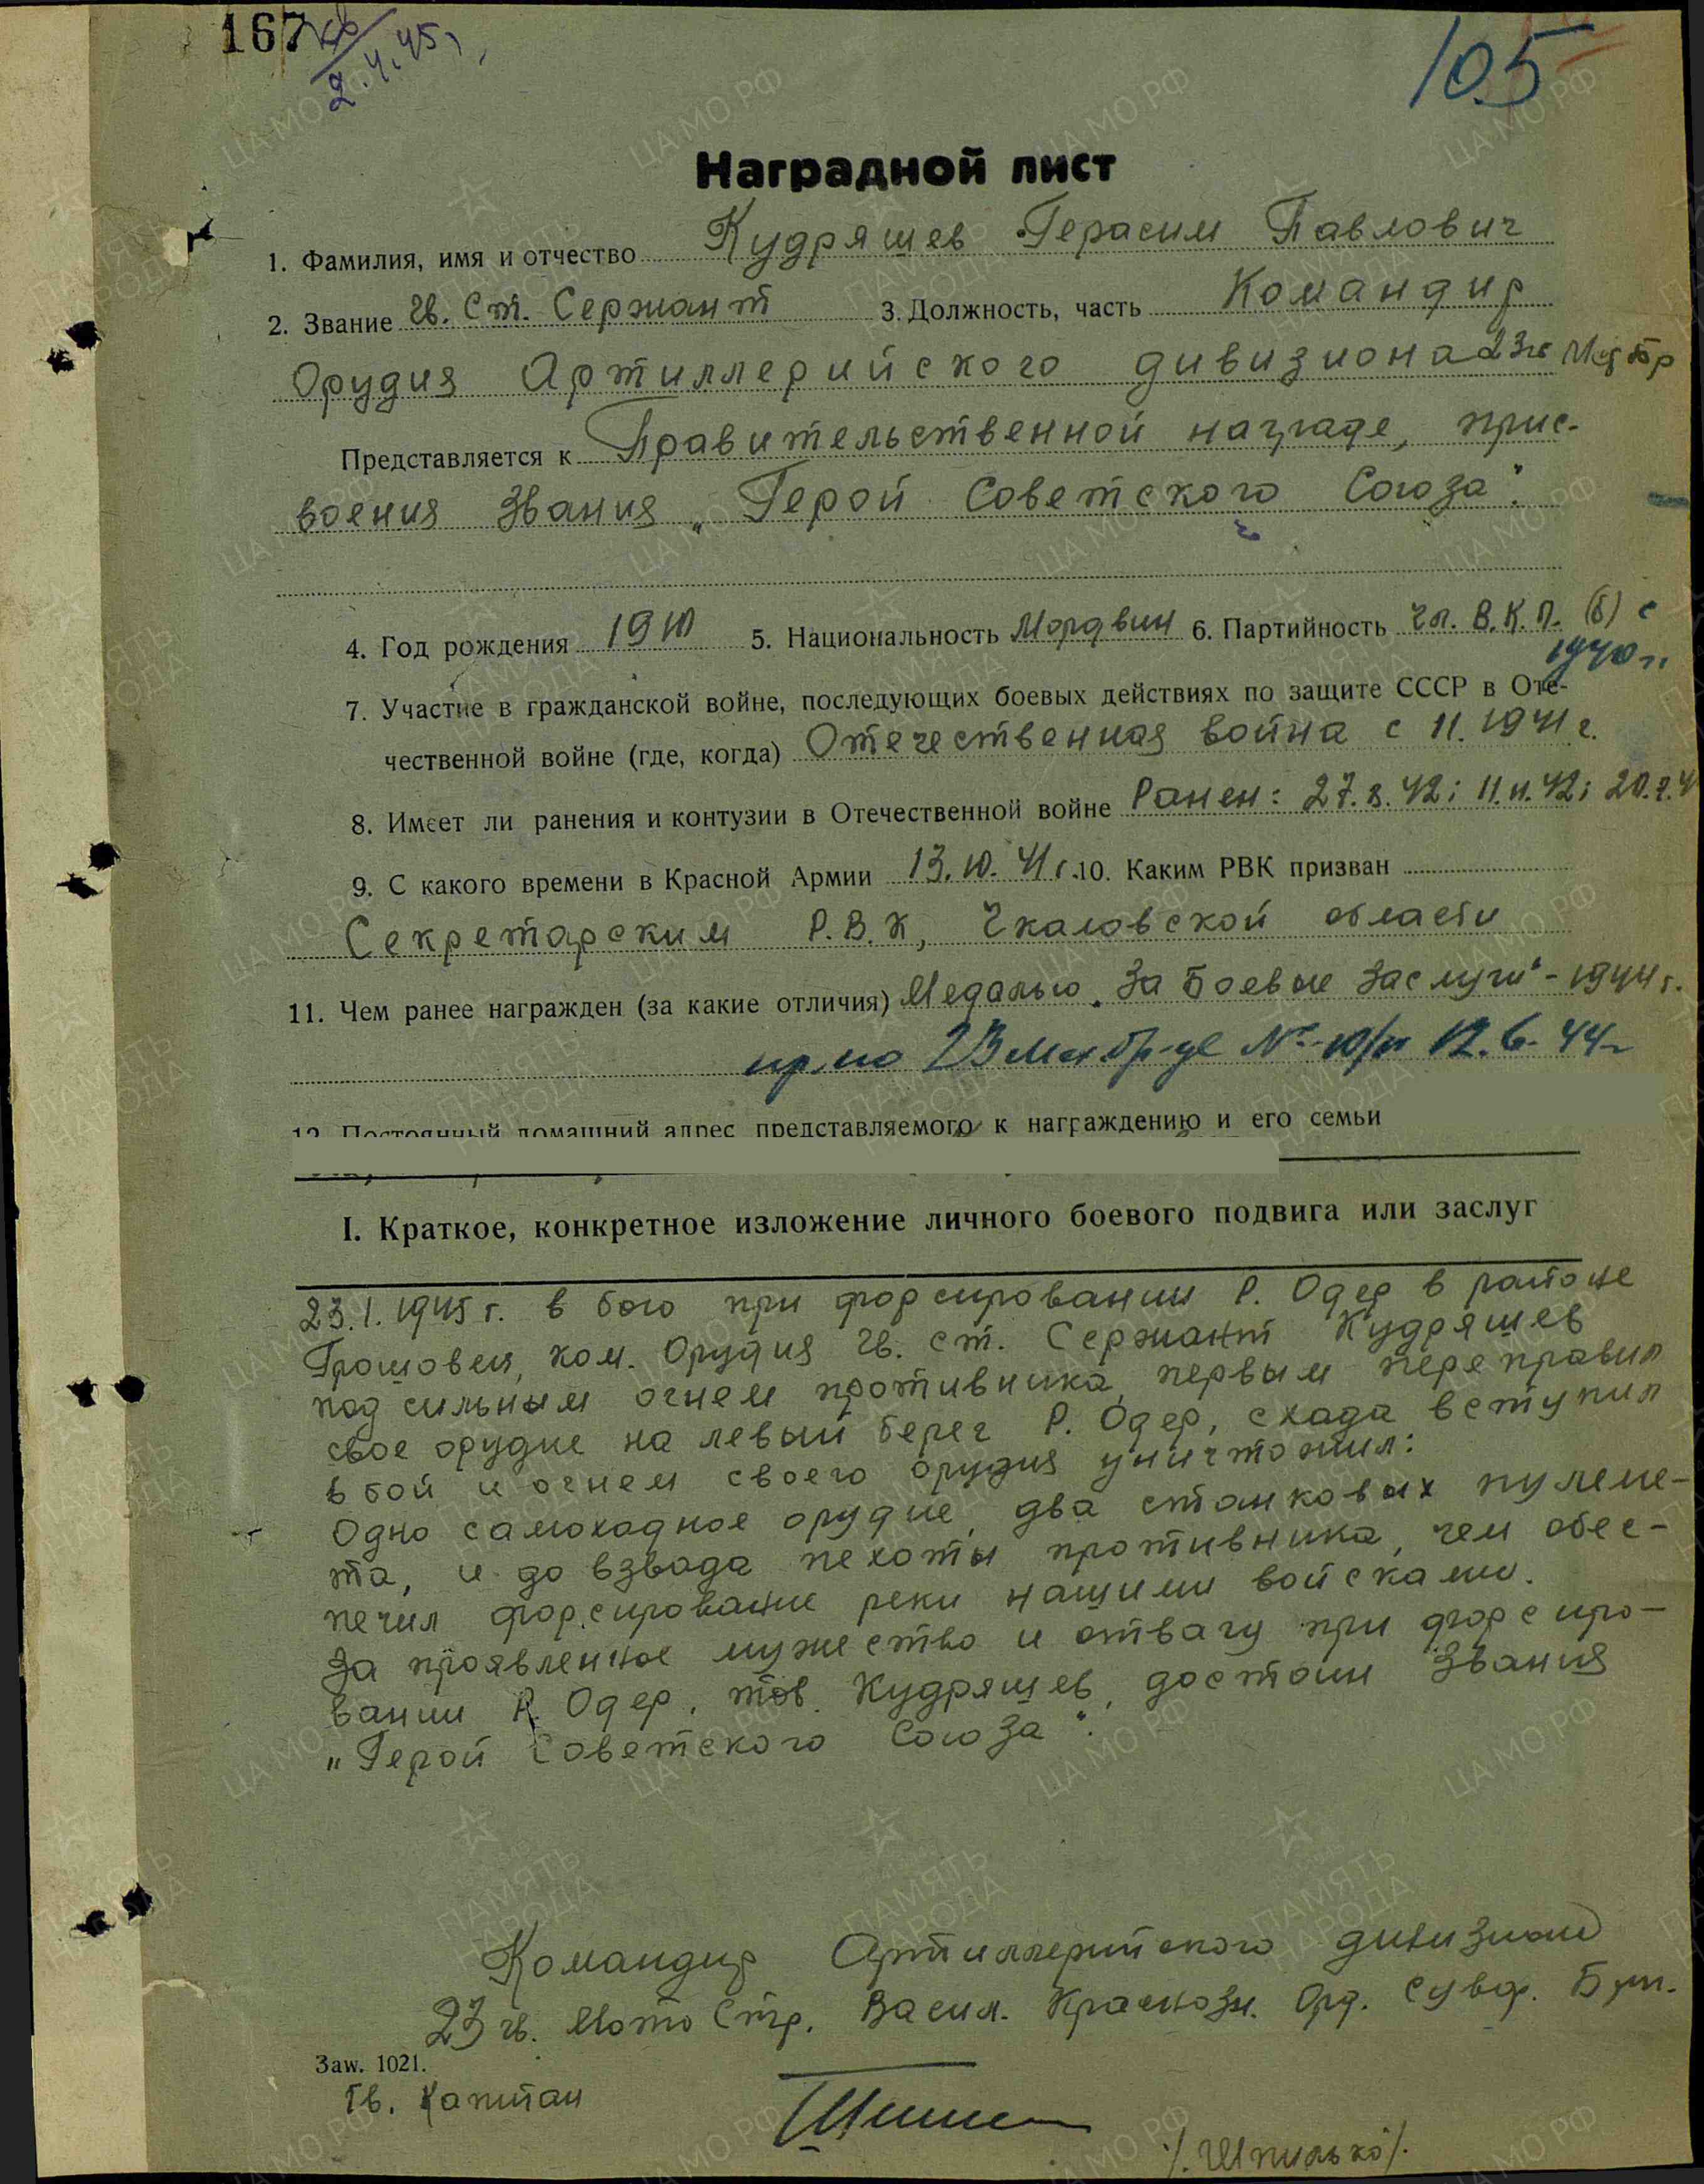 167
2.4.45 г.
105
Наградной лист
1. Фамилия, имя и отчество Кудряшев Герасим Павлович
2. Звание Гв. Ст. Сержант 3. Должность, часть Командир
Орудия Артиллерийского дивизиона 23 гв Мсбр
Представляется к Правительственной награде, прис-
воения звания „Герой Советского Союза".
4. Год рождения 1910 5. Национальность Мордвин 6. Партийность чл. В.К.П. (б) с
1940 г.
7. Участие в гражданской войне, последующих боевых действиях по защите СССР в Оте-
чественной войне (где, когда) Отечественная война с 11. 1941 г.
8. Имеет ли ранения и контузии в Отечественной войне Ранен: 27.8.42; 11.11.42;
9. С какого времени в Красной Армии 13.10.41 г. 10. Каким РВК призван
Секретарским Р.В.К, Чкаловской области
11. Чем ранее награжден (за какие отличия) Медалью „За Боевые Заслуги" - 1944 г.
12.6.44
12. Постоянный домашний адрес представляемого к награждению и его семьи
I. Краткое, конкретное изложение личного боевого подвига или заслуг
23.1.1945 г. в бою при форсировании Р. Одер в районе
Грошовен, ком. Орудия Гв. ст. Сержант Кудряшев
под сильным огнем противника, первым переправил
свое орудие на левый берег Р. Одер, схада вступил
в бой и огнем своего орудия уничтожил:
Одно самоходное орудие, два станковых пулеме-
та, и до взвода пехоты противника, чем обес-
печил форсирование реки нашими войсками.
За проявленное мужество и отвагу при форсиро-
вании Р. Одер, тов. Кудряшев, достоин звания
„Герой Советского Союза".
Командир Артиллерийского дивизиона
23 гв. Мото Стр. Васил. Краснозн. Орд. Сувор. Бриг.
Заw. 1021.
Гв. Капитан
/Шпилько/.
ЦА МО РФ
ПАМЯТЬ НАРОДА